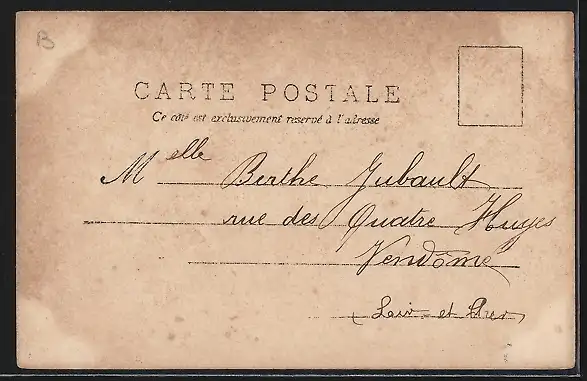 B
CARTE POSTALE
Ce côté est exclusivement reservé à l'adresse
Melle Berthe Jubault
rue des Quatre Huyes
Vendôme
(Loir-et-Cher)